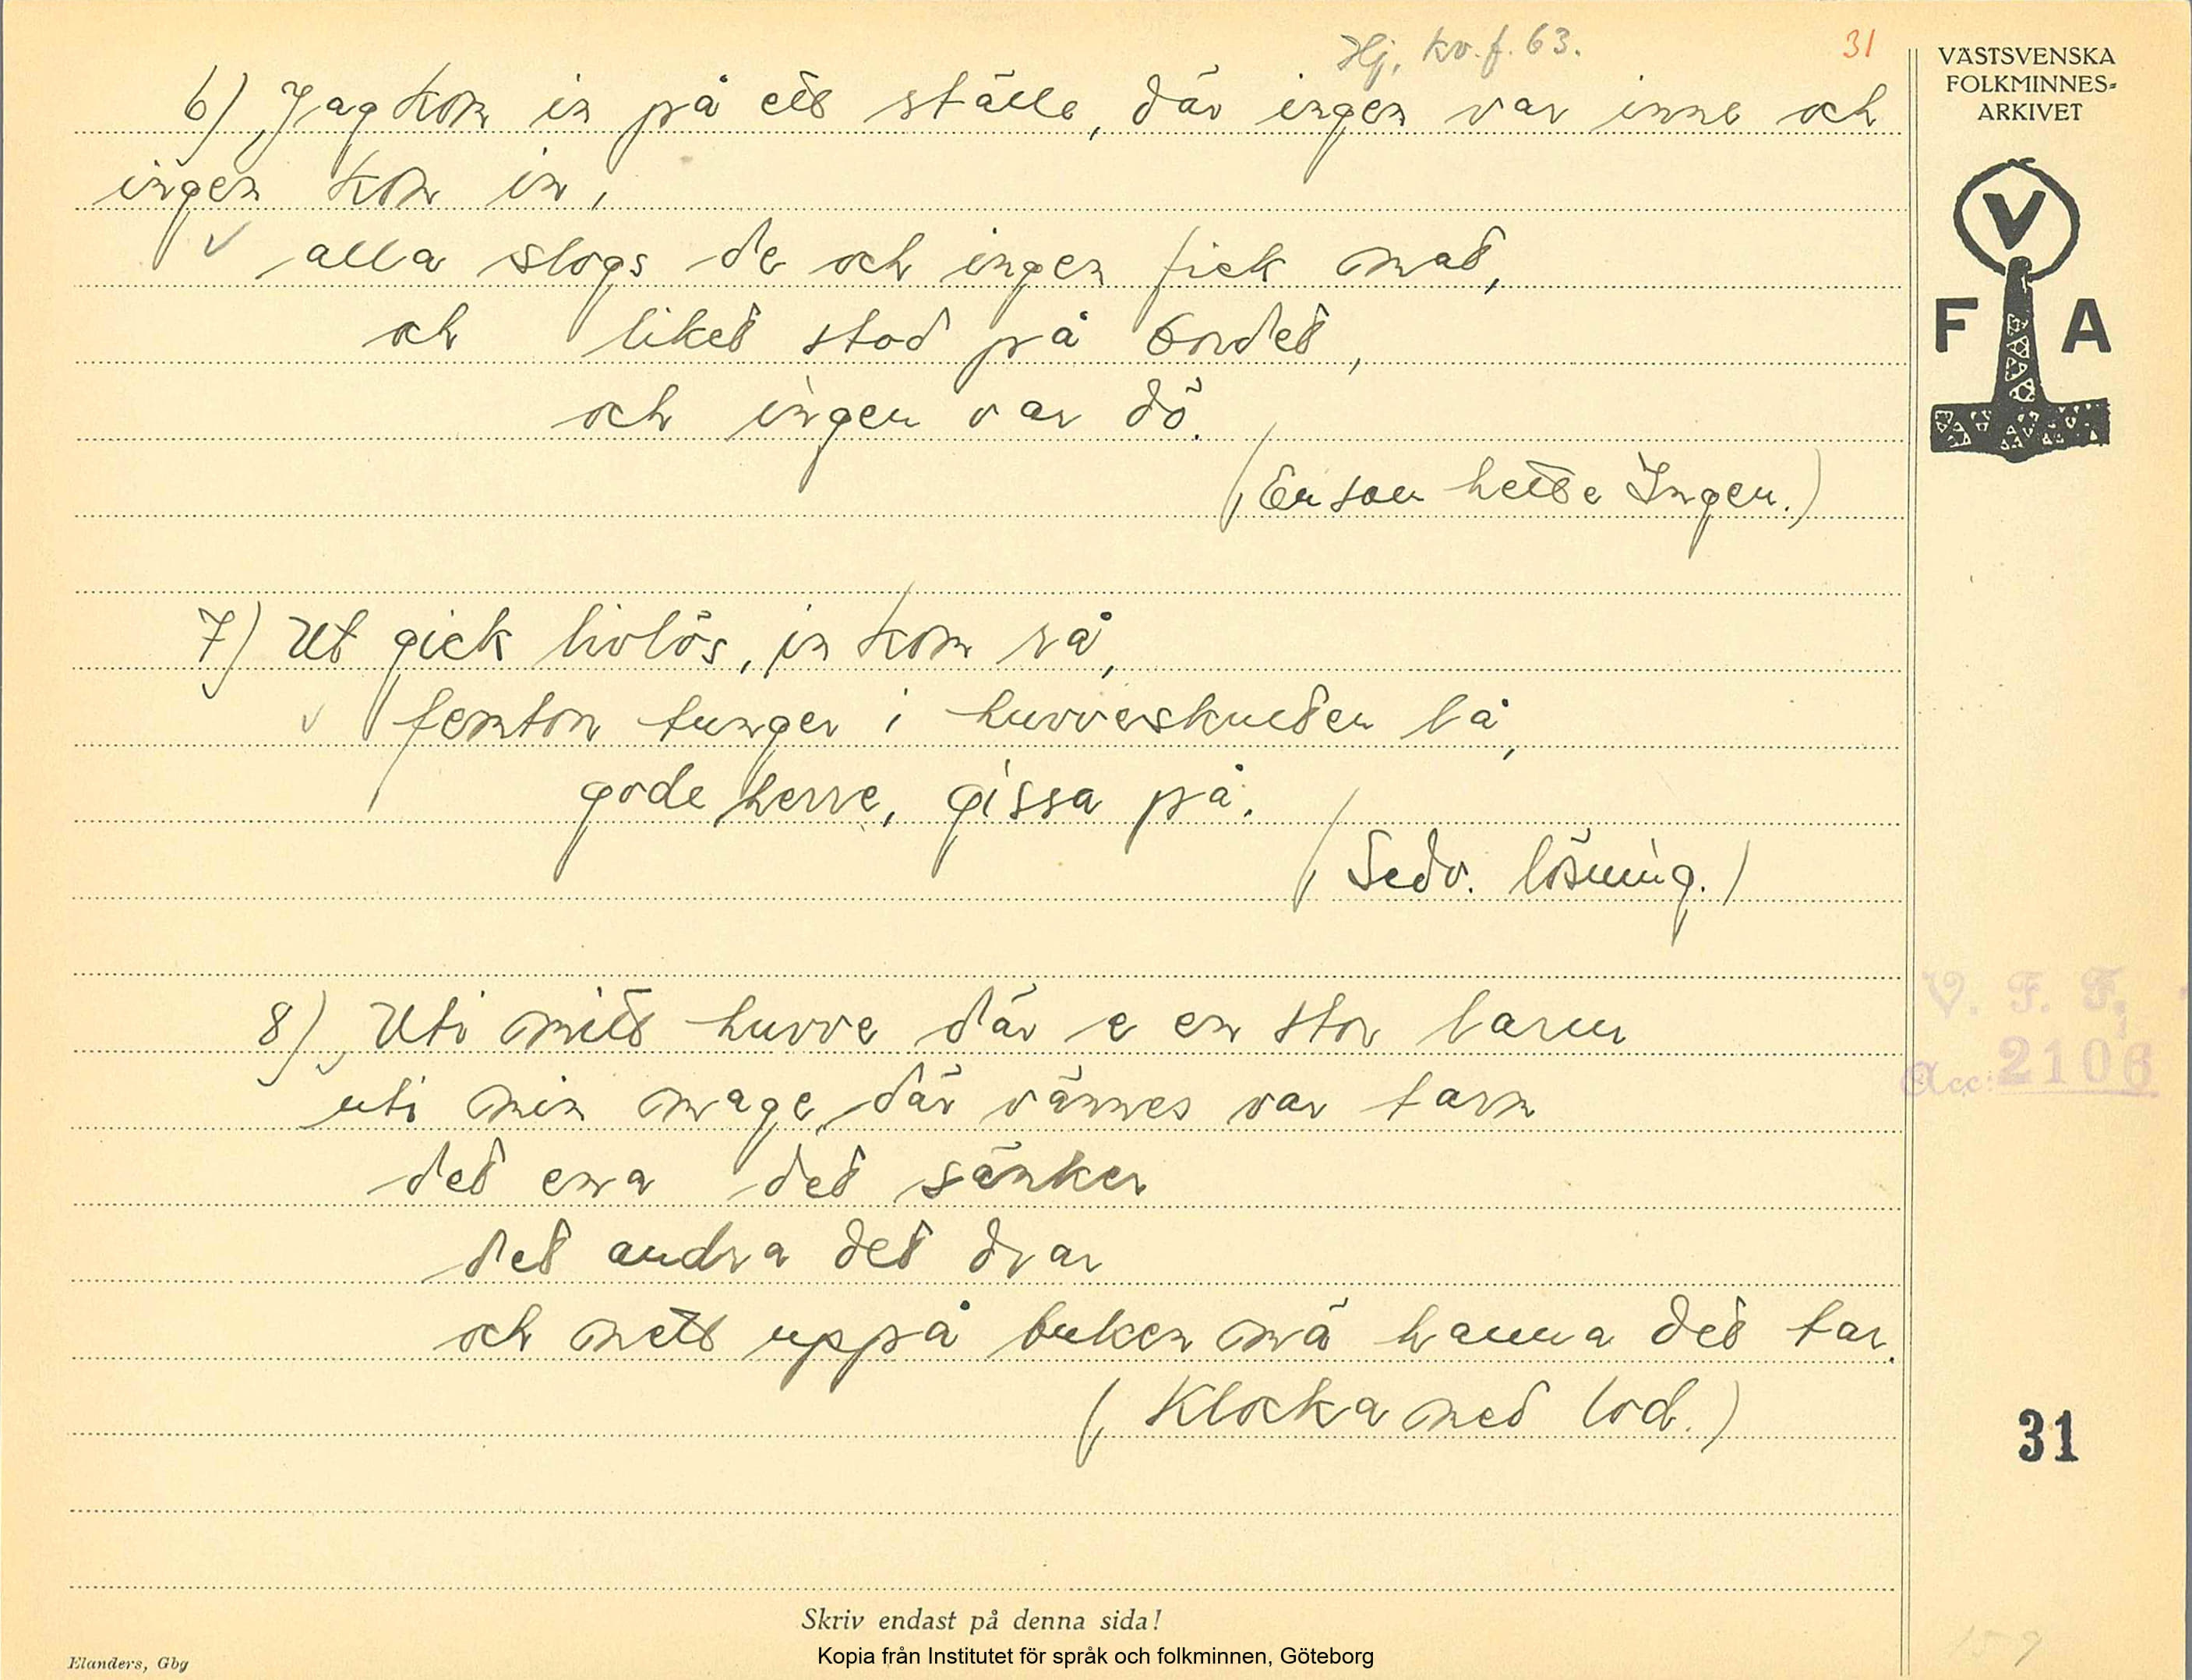 Hj. kv. f. 63.
31
6) Jag kom in på ett ställe, där ingen var inne och
ingen kom in,
alla slogs de och ingen fick mat,
och liket stod på bordet,
och ingen var dö.
(En som hette Ingen.)
7) Ut gick livlös, in kom rå,
femton tunger i huvveskutten lå,
gode herre, gissa på.
(Sedv. lösning.)
8) Uti mitt huvve där e en stor larm
uti min mage där vännes var tarm
det ena det sänker
det andra det drar
och mett uppå buken mä hanna det tar.
(Klocka med lod.)
VÄSTSVENSKA
FOLKMINNES-
ARKIVET
V
F A
V. F. F.
Acc: 2106
31
Skriv endast på denna sida!
Kopia från Institutet för språk och folkminnen, Göteborg
Elanders, Gbg